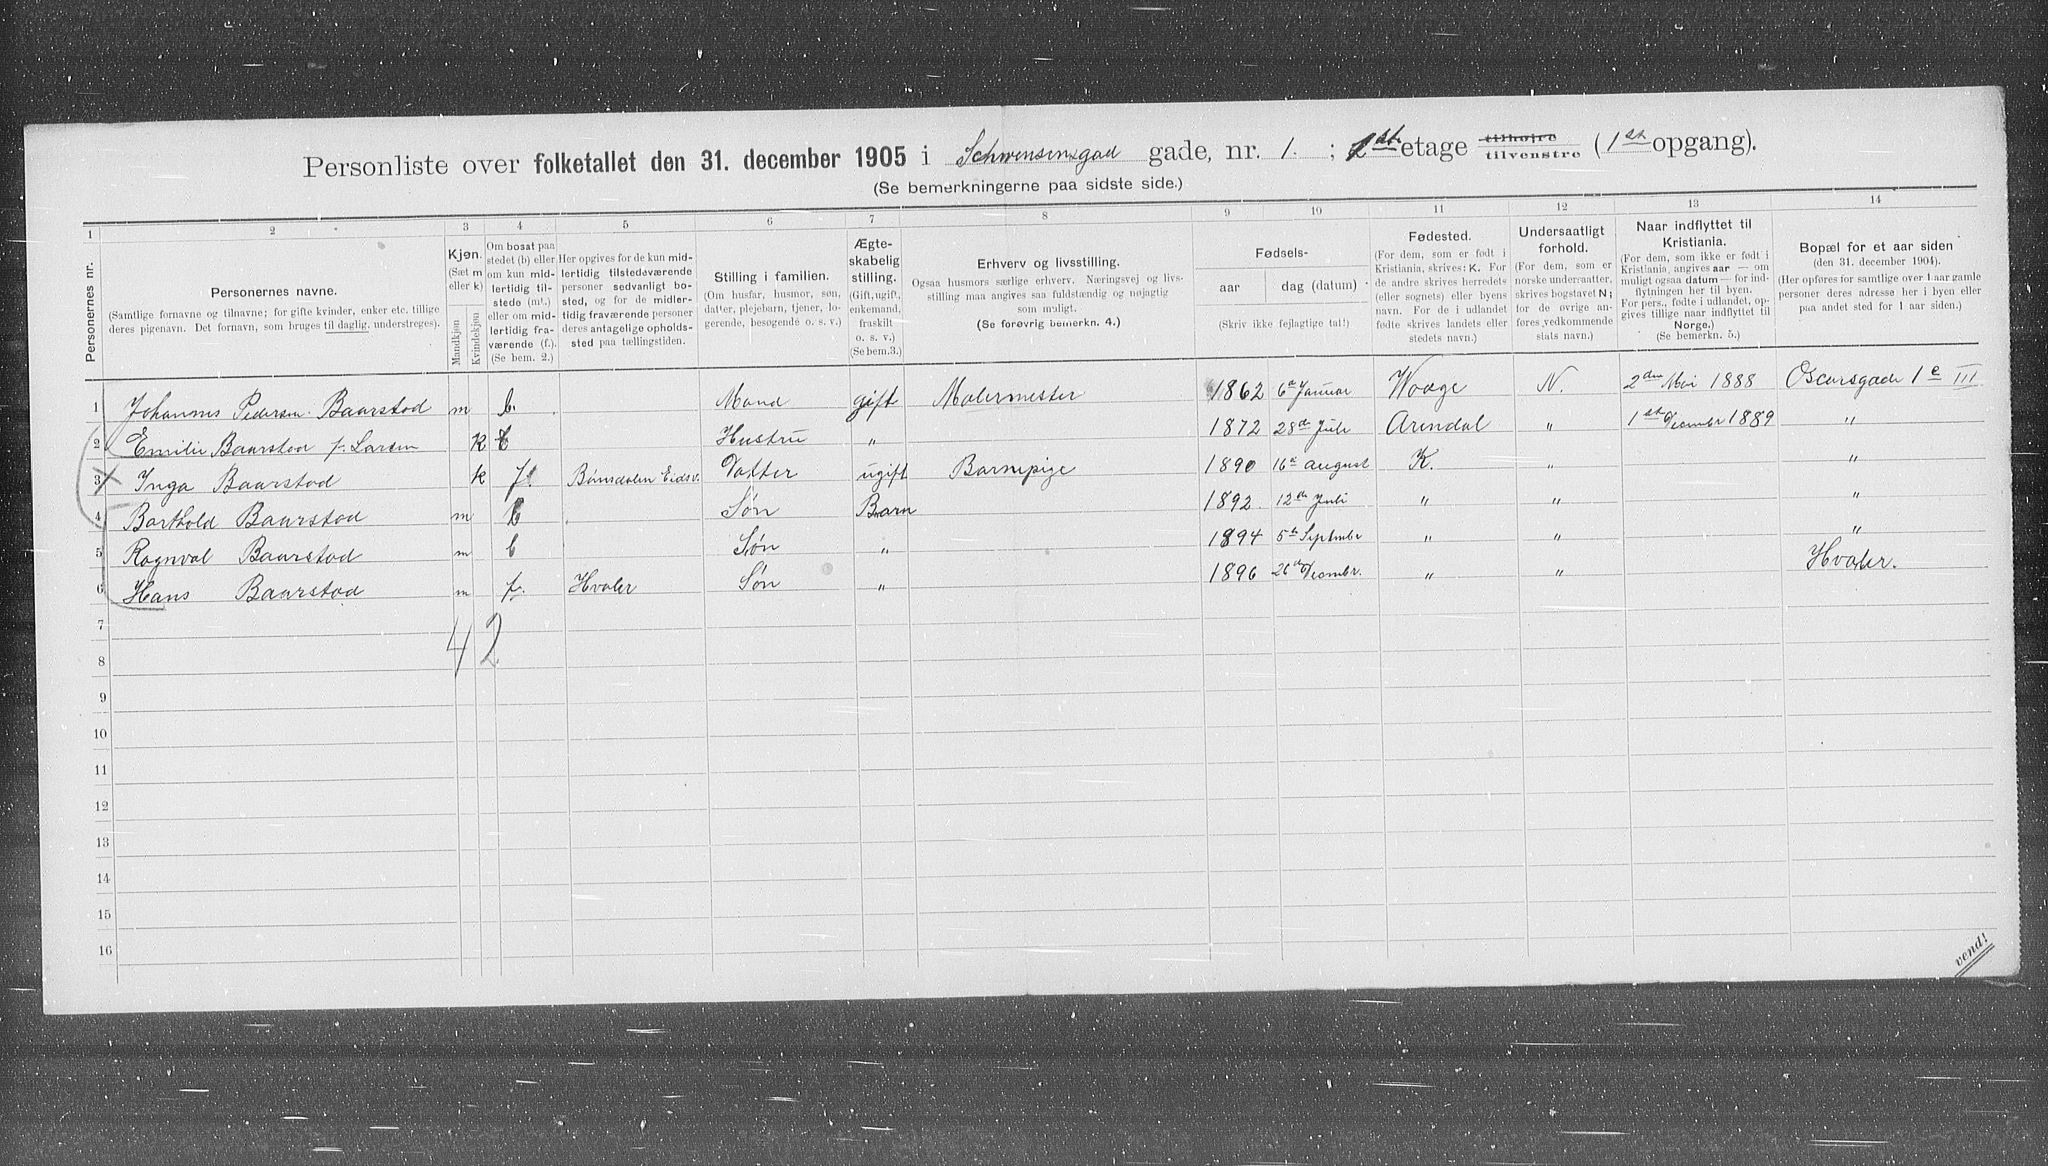 Personliste over folketallet den 31. december 1905 i Schwensensgad gade, nr. 1. ; 1st etage tilhøjre tilvenstre (1st opgang).
(Se bemerkningerne paa sidste side.)
1 2 3 4 5 6 7 8 9 10 11 12 13 14
Personernes nr.
Personernes navne.
(Samtlige fornavne og tilnavne; for gifte kvinder, enker etc. tillige
deres pigenavn. Det fornavn, som bruges til daglig, understreges).
Kjøn.
(Sæt m
eller k)
Mandkjøn
Kvindekjøn
Om bosat paa
stedet (b) eller
om kun mid-
lertidig til-
stede (mt.)
eller om mid-
lertidig fra-
værende (f.).
(Se bem. 2.)
Her opgives for de kun mid-
lertidig tilstedeværende
personer sedvanligt bo-
sted, og for de midler-
tidig fraværende personer
deres antagelige opholds-
sted paa tællingstiden.
Stilling i familien.
(Om husfar, husmor, søn,
datter, plejebarn, tjener, lo-
gerende, besøgende o. s. v.)
Ægte-
skabelig
stilling.
(Gift, ugift,
enkemand,
fraskilt
o. s. v.)
(Se bem.3.)
Erhverv og livsstilling.
Ogsaa husmors særlige erhverv. Næringsvej og livs-
stilling maa angives saa fuldstændig og nøjagtig
som muligt.
(Se forøvrig bemerkn. 4.)
Fødsels-
aar
dag (datum)
(Skriv ikke fejlagtige tal!)
Fødested.
(For dem, som er født i
Kristiania, skrives: K. For
de andre skrives herredets
(eller sognets) eller byens
navn. For de i udlandet
fødte skrives landets eller
stedets navn.)
Undersaatligt
forhold.
(For dem, som er
norske undersaatter,
skrives bogstavet N;
for de øvrige an-
føres vedkommende
stats navn.)
Naar indflyttet til
Kristiania.
(For dem, som ikke er født i
Kristiania, angives aar — om
muligt ogsaa datum — for ind-
flytningen her til byen.
For pers., fødte i udlandet, op-
gives tillige naar indflyttet til
Norge.)
(Se bemerkn. 5.)
Bopæl for et aar siden
(den 31. december 1904).
(Her opføres for samtlige over 1 aar gamle
personer deres adresse her i byen eller
paa andet sted for 1 aar siden.)
1 Johannes Pedersen Baarstad m b. Mand gift Malermester 1862 6te Januar Waage N. 2den Mai 1888 Oscarsgade 1 e III
2 Emilie Baarstad f. Larsen k b Hustru " 1872 28de Juli Arendal " 1st Decembr 1889 "
3 Inga Baarstad k f. Bønsdalen Eidsv. Datter ugift Barnepige 1890 16de august K. " "
4 Barthold Baarstad m b Søn Barn 1892 12te Juli " " "
5 Ragnval Baarstad m b Søn " 1894 5th September " " "
6 Hans Baarstad m f. Hvaler Søn " 1896 26de Decembr. " " Hvaler.
7 4 2
8
9
10
11
12
13
14
15
16
vend!